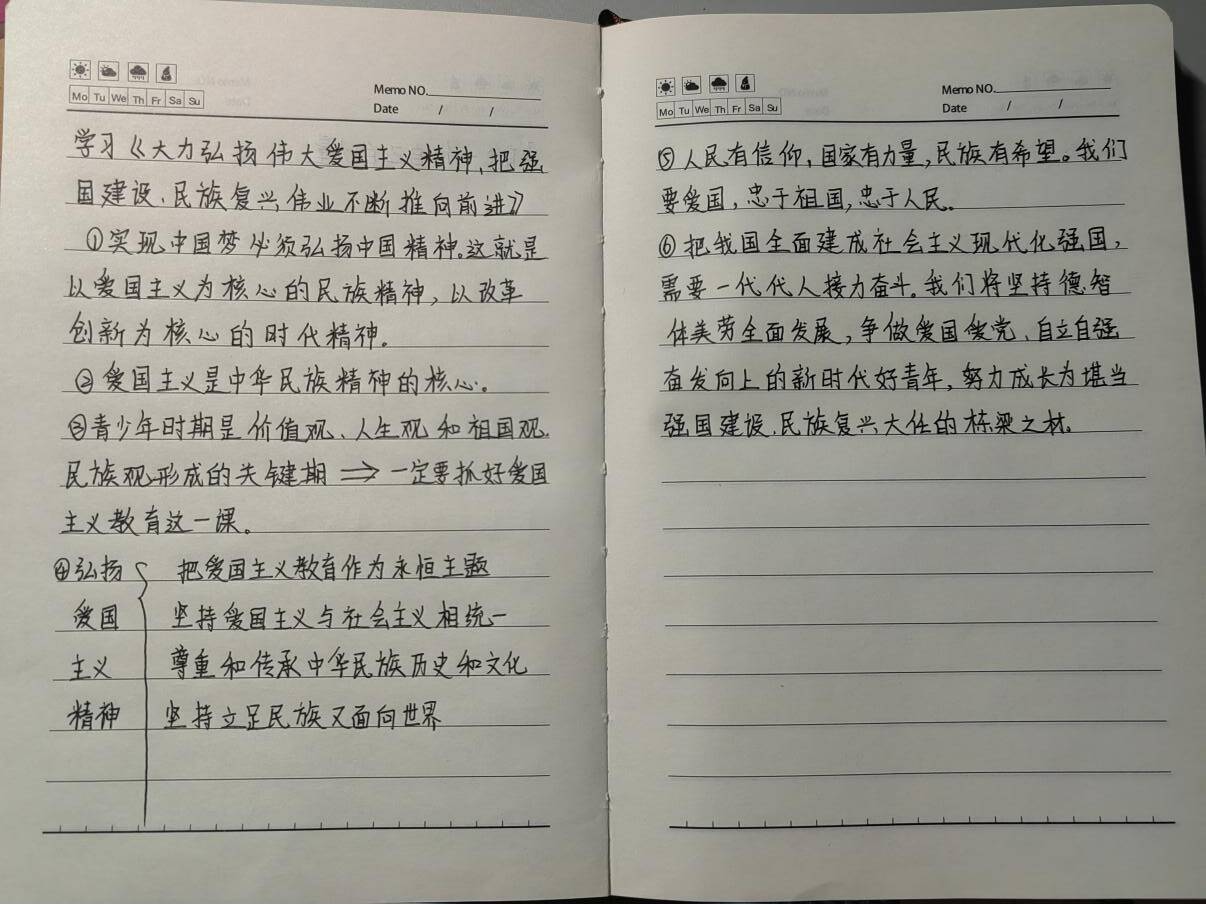 Mo Tu We Th Fr Sa Su
Memo NO.
Date / /
学习《大力弘扬伟大爱国主义精神,把强
国建设、民族复兴伟业不断推向前进》
①实现中国梦必须弘扬中国精神。这就是
以爱国主义为核心的民族精神,以改革
创新为核心的时代精神。
②爱国主义是中华民族精神的核心。
③青少年时期是价值观、人生观和祖国观、
民族观形成的关键期⇒一定要抓好爱国
主义教育这一课。
④弘扬 把爱国主义教育作为永恒主题
爱国 坚持爱国主义与社会主义相统一
主义 尊重和传承中华民族历史和文化
精神 坚持立足民族又面向世界
Mo Tu We Th Fr Sa Su
Memo NO.
Date / /
⑤人民有信仰,国家有力量,民族有希望。我们
要爱国,忠于祖国,忠于人民。
⑥把我国全面建成社会主义现代化强国,
需要一代代人接力奋斗。我们将坚持德智
体美劳全面发展,争做爱国爱党、自立自强
奋发向上的新时代好青年,努力成长为堪当
强国建设、民族复兴大任的栋梁之材。